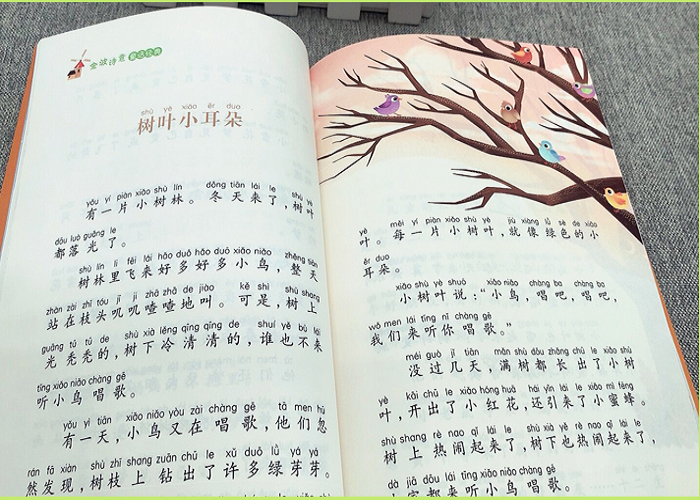 金波诗意
童话经典
shù yè xiǎo ěr duo
树叶小耳朵
yǒu yí piàn xiǎo shù lín dōng tiān lái le shù yè
有一片小树林。冬天来了,树叶
dōu luò guāng le
都落光了。
shù lín li fēi lái hǎo duō hǎo duō xiǎo niǎo zhěng tiān
树林里飞来好多好多小鸟,整天
zhàn zài zhī tóu jī jī zhā zhā de jiào kě shì shù shang
站在枝头叽叽喳喳地叫。可是,树上
guāng tū tū de shù xià lěng qīng qīng de shuí yě bù lái
光秃秃的,树下冷清清的,谁也不来
tīng xiǎo niǎo chàng gē
听小鸟唱歌。
yǒu yì tiān xiǎo niǎo yòu zài chàng gē tā men hū
有一天,小鸟又在唱歌,他们忽
rán fā xiàn shù zhī shang zuān chū le xǔ duō lǜ yá yá
然发现,树枝上钻出了许多绿芽芽。
yè měi yí piàn xiǎo shù yè jiù xiàng lǜ sè de xiǎo
叶。每一片小树叶,就像绿色的小
ěr duo
耳朵。
xiǎo shù yè shuō xiǎo niǎo chàng ba chàng ba
小树叶说:“小鸟,唱吧,唱吧,
wǒ men lái tīng nǐ chàng gē
我们来听你唱歌。”
méi guò jǐ tiān mǎn shù dōu zhǎng chū le xiǎo shù
没过几天,满树都长出了小树
yè kāi chū le xiǎo hóng huā hái yǐn lái le xiǎo mì fēng
叶,开出了小红花,还引来了小蜜蜂。
shù shang rè nao qǐ lái le shù xià yě rè nao qǐ lái le
树上热闹起来了,树下也热闹起来了,
dà jiā dōu lái tīng xiǎo niǎo chàng gē
大家都来听小鸟唱歌。